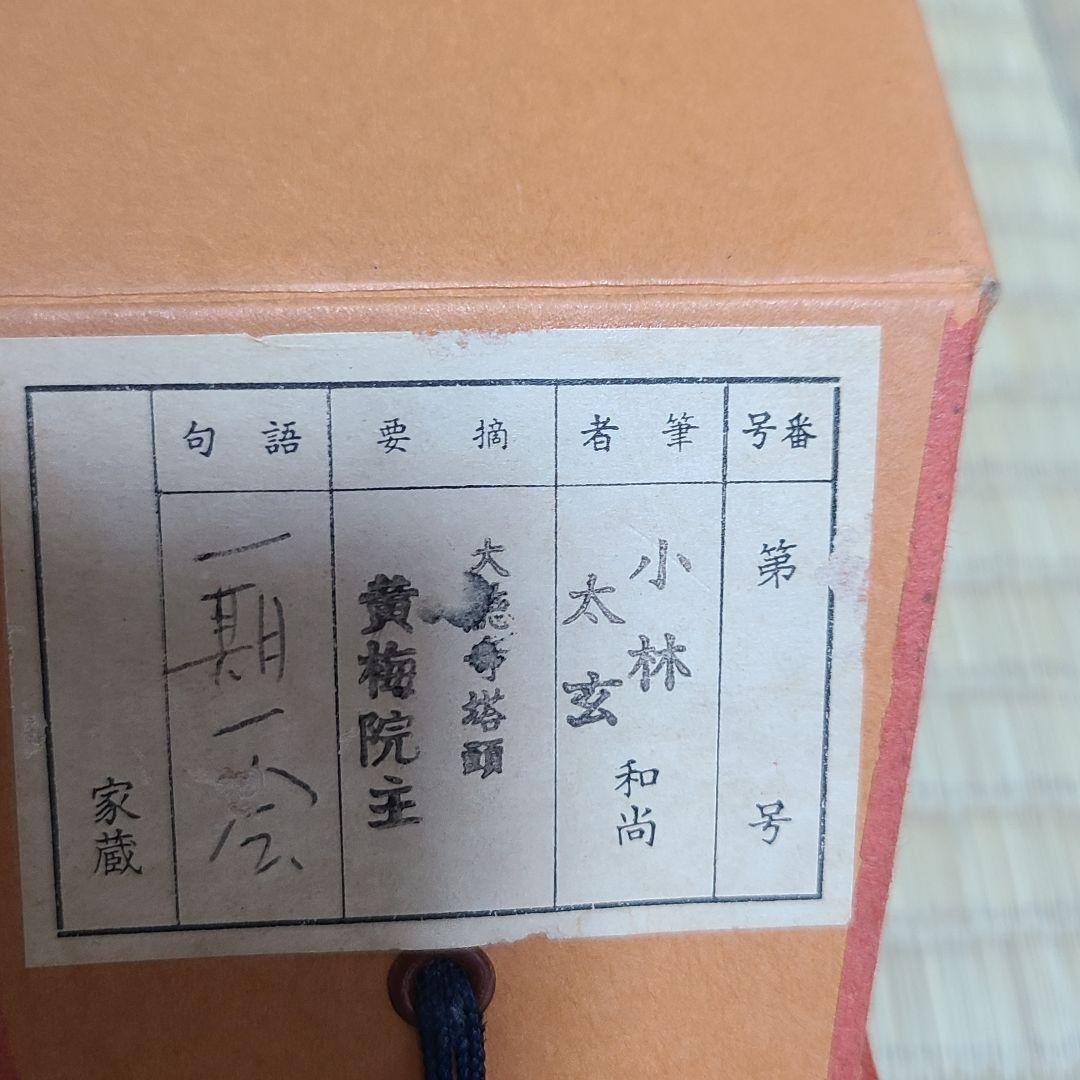 番号
第 号
筆者
小林
太玄
和尚
摘要
大徳寺塔頭
黄梅院主
語句
一期一会
家蔵